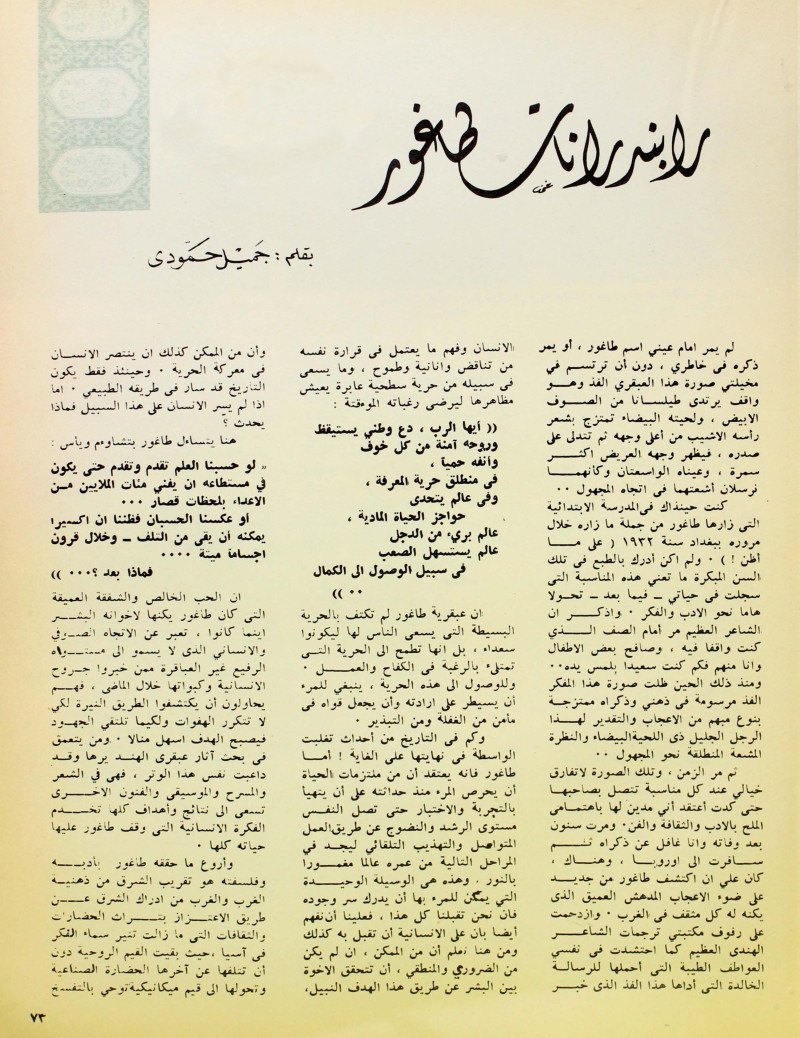 رابندرانات طاغور
بقلم : جميل حمودي
لم يمر امام عيني اسم طاغور ، أو يمر
ذكره في خاطري ، دون أن ترتسم في
مخيلتي صورة هذا العبقري الفذ وهـــو
واقف يرتدى طيلسـانا من الصـــوف
الابيض ، ولحيته البيضاء تمتزج بشعر
رأسه الاشيب من أعلى وجهه ثم تتدلى على
صدره ، فيظهر وجهه العريض اكثـــر
سمرة ، وعيناه الواسعتان وكأنهمـــا
ترسلان أشعتهما في اتجاه المجهول ٠٠
كنت حينذاك في المدرسة الابتدائية
التي زارها طاغور من جملة ما زاره خلال
مروره ببغداد سنة ١٩٣٢ ( على مـــا
أظن ! ) ٠ ولم اكن أدرك بالطبع في تلك
السن المبكرة ما تعني هذه المناسبة التى
سجلت في حياتي ـ فيما بعد ـ تحـولا
هاما نحو الادب والفكر ٠ واذكـــر ان
الشاعر العظيم مر أمام الصف الـــذي
كنت واقفا فيه ، وصافح بعض الاطفال
وانا منهم فكم كنت سعيدا بلمس يده٠٠
ومنذ ذلك الحين ظلت صورة هذا المفكر
الفذ مرسومة في ذهني وذكراه ممتزجـة
بنوع مبهم من الاعجاب والتقدير لهـــذا
الرجل الجليل ذى اللحية البيضاء والنظرة
المشعة المنطلقة نحو المجهول ٠٠
ثم مر الزمن ، وتلك الصورة لاتفارق
خيالي عند كل مناسبة تتصل بصاحبهـا
حتى كدت أعتقد أني مدين لها باهتمـامي
الملح بالادب والثقافة والفن٠ ومرت سنون
بعد وفاته وانا غافل عن ذكراه ثـــم
ســافرت الى اوروبـا ، وهنـاك ،
كان علي ان اكتشف طاغور من جديـــد
على ضوء الاعجاب المدهش العميق الذى
يكنه له كل مثقف في الغرب ٠ وازدحمت
على رفوف مكتبتي ترجمات الشاعـــر
الهندى العظيم كما احتشدت في نفسي
العواطف الطيبة التى أحملها للرسـالة
الخالدة التى أداها هذا الفذ الذى خبـــر
الانسان وفهم ما يعتمل في قرارة نفسه
من تناقض وانانية وطموح ، وما يسعى
في سبيله من حرية سطحية عابرة يعيش
مظاهرها ليرضي رغباته الموءقتة :
(( أيها الرب ، دع وطني يستيقظ
وروحه آمنة من كل خوف
وأنفه حمياً ،
في منطلق حرية المعرفة ،
وفي عالم يتحدى
حواجز الحياة المادية ،
عالم برىء من الدجل
عالم يستسهل الصعب
في سبيل الوصول الى الكمال
٠٠ ))
ان عبقرية طاغور لم تكتف بالحرية
البسيطة التى يسعى الناس لها ليكونوا
سعداء ، بل انها تطمح الى الحرية التـــى
تمتلىء بالرغبة في الكفاح والعمـــل ٠
وللوصول الى هذه الحرية ، ينبغي للمرء
أن يسيطر على ارادته وأن يجعل قواه في
مأمن من الغفلة ومن التبذير ٠
وكم في التاريخ من أحداث تغلبت
الواسطة في نهايتها على الغاية ! أمـــا
طاغور فانه يعتقد أن من ملتزمات الحياة
أن يحرص المرء منذ حداثته على أن يتهيأ
بالتجربة والاختبار حتى تصل النفـــس
مستوى الرشد والنضوج عن طريق العمل
المتواصل والتهذيب التلقائي ليجد في
المراحل التالية من عمره عالما مغمـــورا
بالنور ٠ وهذه هى الوسيلة الوحيـــدة
التي يمكن للمرء بها أن يدرك سر وجوده
فان نحن تقبلنا كل هذا ، فعلينا أن نفهم
أيضا بان على الانسانية أن تقبل به كذلك
ومن هنا نعلم أن من الممكن ، ان لم يكن
من الضروري والمنطقي ، أن تتحقق الاخوة
بين البشر عن طريق هذا الهدف النبيل،
وأن من الممكن كذلك ان ينتصر الانســان
في معركة الحرية ٠ وحينئذ فقط يكون
التاريخ قد سار في طريقه الطبيعي ٠ اما
اذا لم يسر الانسان على هذا السبيل فماذا
يحدث ؟
هنا يتساءل طاغور بتشاوءم ويأس :
(( لو حسبنا العلم تقدم وتقدم حتى يكون
في مستطاعه ان يفني مئات الملايين مـــن
الاعداء بلحظات قصار ٠٠٠
أو عكسنا الحسبان فظننا ان اكسيرا
يمكنه أن يقى من التلف ـ وخلال قرون
اجساماً ميتة ٠٠٠٠
فماذا بعد ؟٠٠٠ ))
ان الحب الخالص والشفقة العميقة
التى كان طاغور يكنها لاخوانه البشـــر
اينما كانوا ، تعبر عن الاتجاه الصـوفي
والانساني الذى لا يسمو الى مستـــواه
الرفيع غير العباقرة ممن خبروا جـــروح
الانسانية وكبواتها خلال الماضي ، فهـــم
يحاولون أن يكتشفوا الطريق النيرة لكي
لا تتكرر الهفوات ولكيما تلتقي الجهــود
فيصبح الهدف اسهل منالا ٠ ومن يتعمق
في بحث آثار عبقرى الهند يرها وقـــد
داعبت نفس هذا الوتر ، فهى في الشعر
والمسرح والموسيقى والفنون الاخـــرى
تسعى الى نتائج وأهداف كلها تخـــدم
الفكرة الانسانية التى وقف طاغور عليها
حياته كلها ٠
وأروع ما حققه طاغور بأدبـــه
وفلسفته هو تقريب الشرق من ذهنيـة
الغرب والغرب من ادراك الشرق عـــن
طريق الاعتـــزاز بتـــراث الحضارات
والثقافات التى ما زالت تنير سماء الفكر
في آسيا ،حيث بقيت القيم الروحية دون
أن تتلفها عن آخرها الحضارة الصناعية
وتحولها الى قيم ميكانيكية توحي بالتفسخ
٧٣